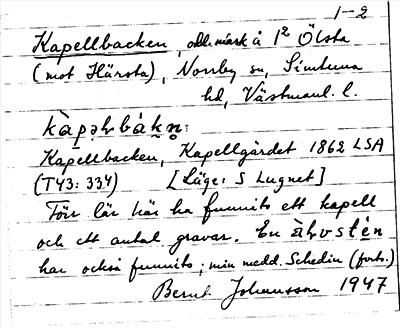 1-2
Kapellbacken, obl. mark å 1² Ölsta
(mot Härsta), Norrby sn, Simtuna
hd, Västmanl. l.
kàpəlbákn̥:
Kapellbacken, Kapellgärdet 1862 LSA
(T43: 334) [Läge: S Lugnet]
Förr lär här ha funnits ett kapell
och ett antal gravar. En
har också funnits; min medd. Schedin (forts.)
Bernt Johansson 1947